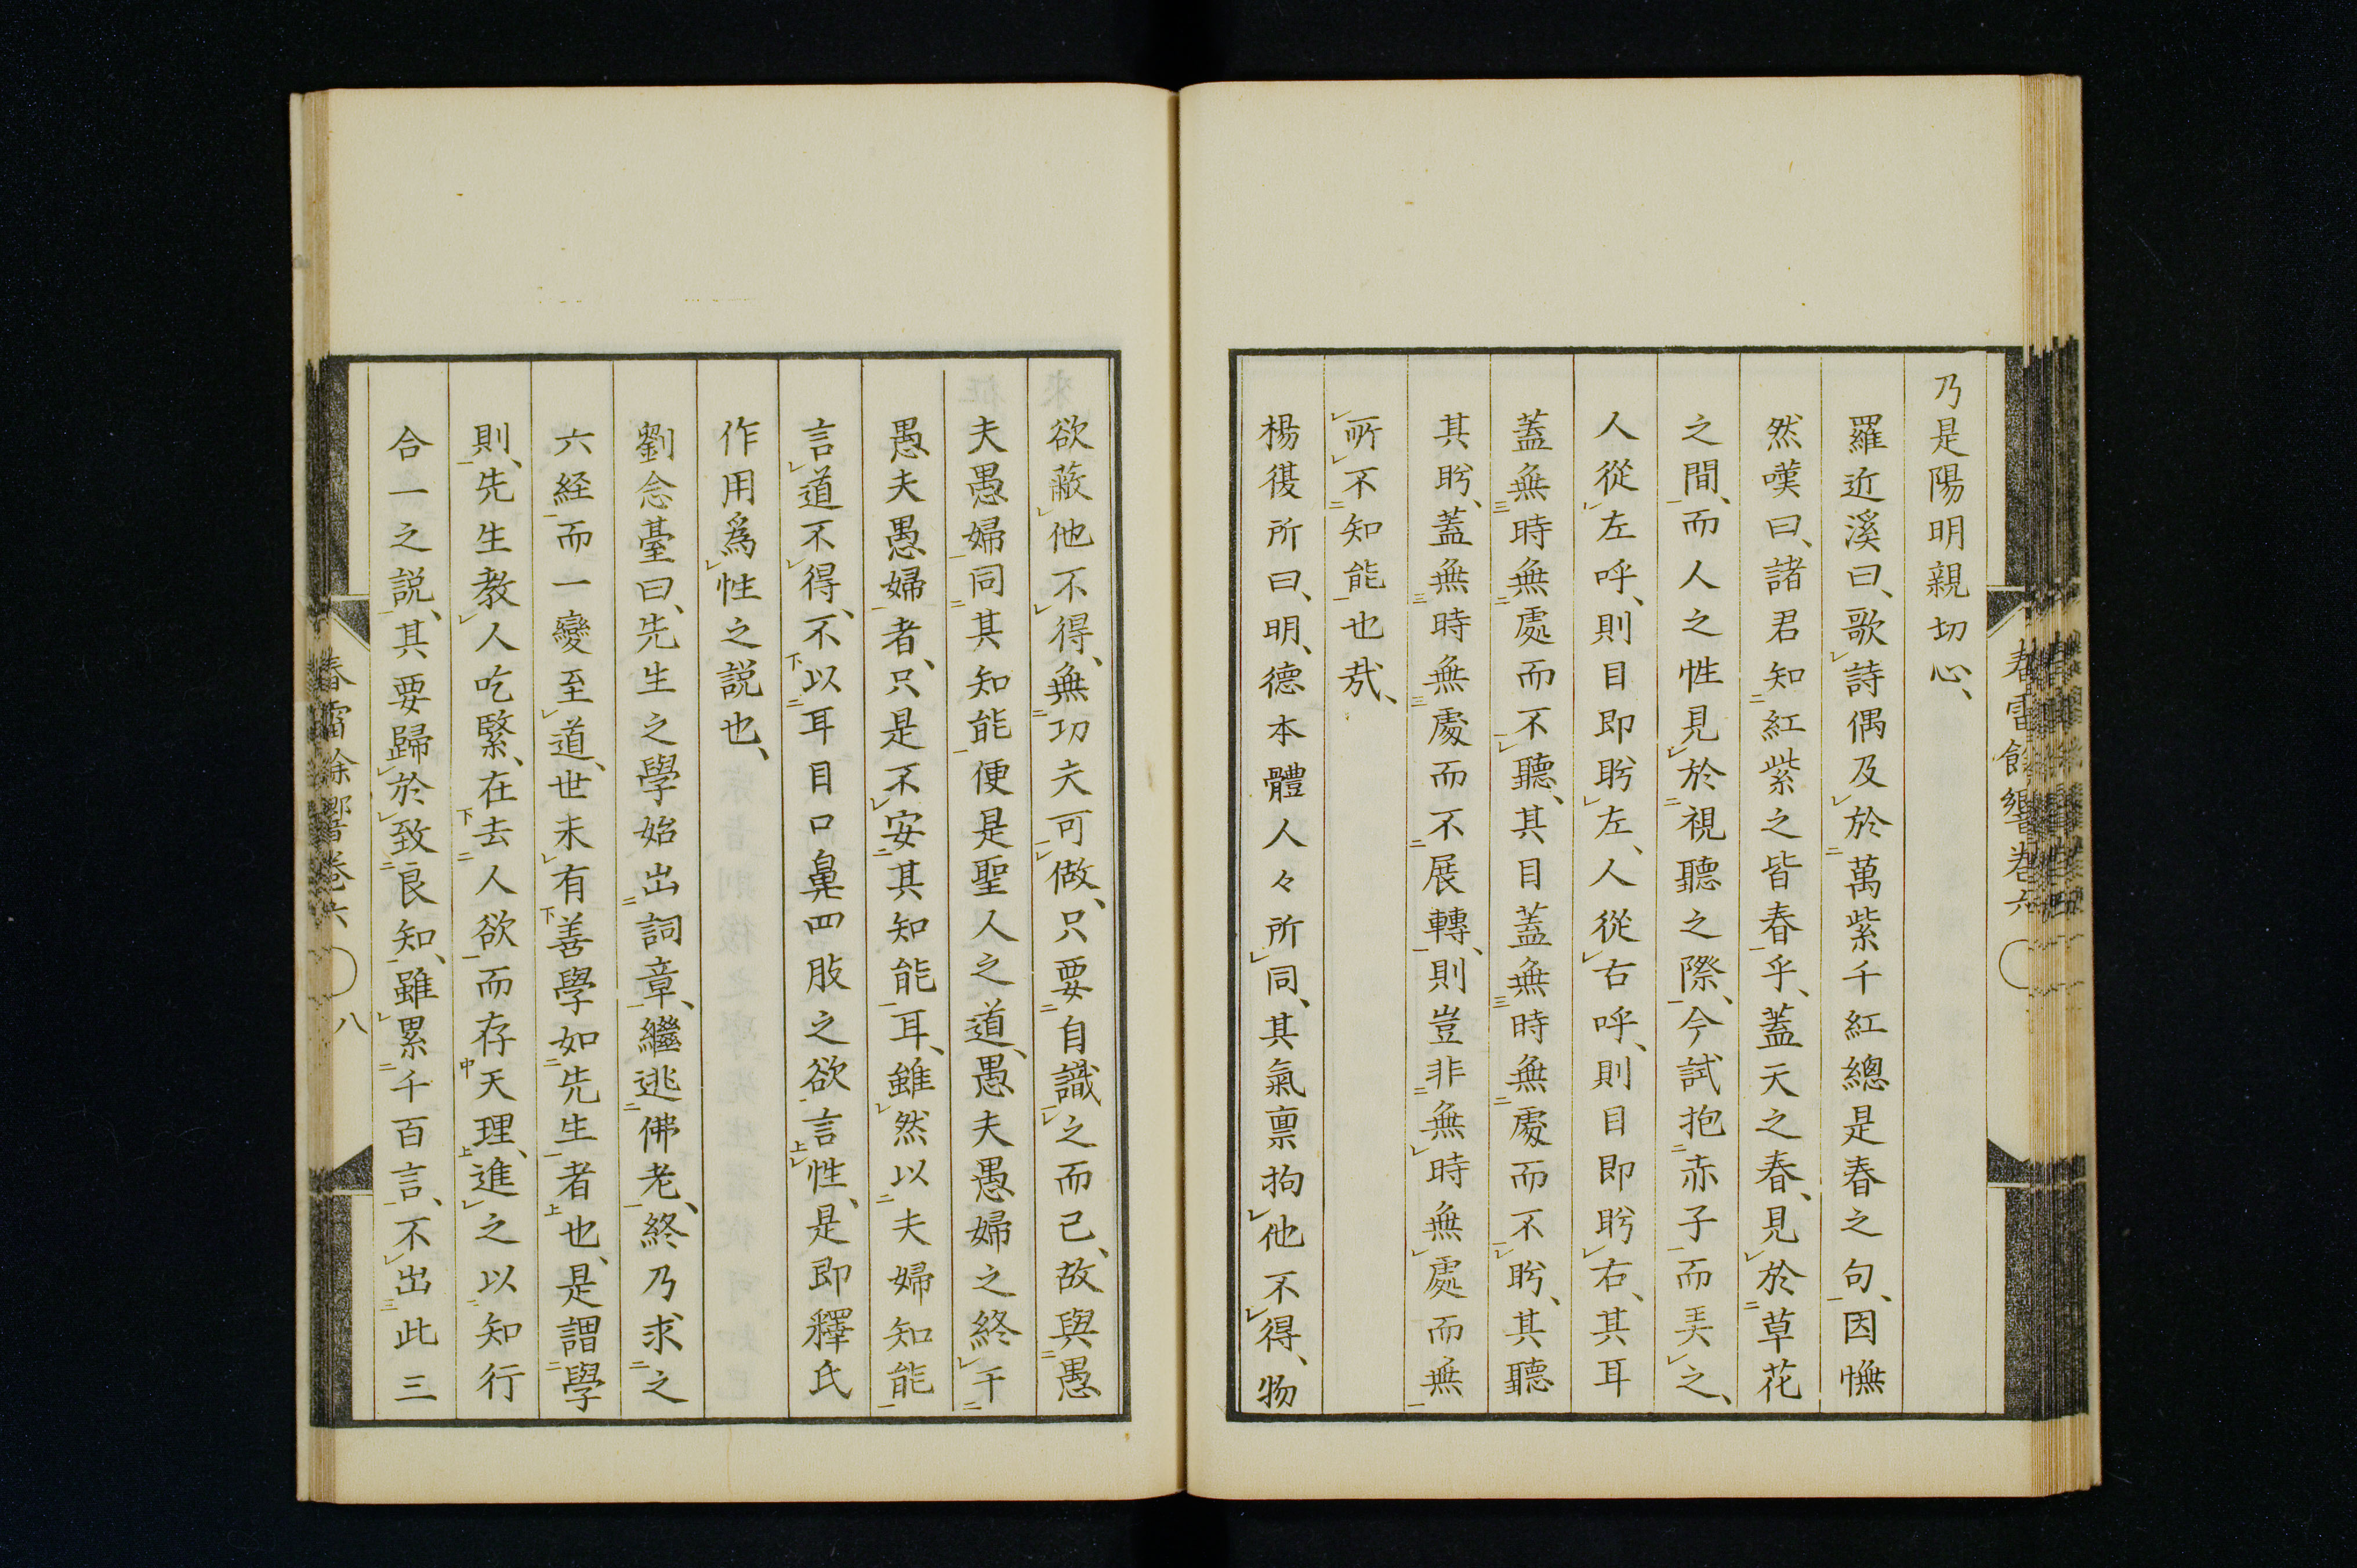 乃是陽明親切心、
羅近溪曰、歌詩偶及於萬紫千紅總是春之句、因憮
然嘆曰、諸君知紅紫之皆春乎、蓋天之春、見於草花
之間、而人之性見於視聽之際、今試抱赤子而弄之、
人從左呼、則目即盻左、人從右呼、則目即盻右、其耳
蓋無時無處而不聽、其目蓋無時無處而不盻、其聽
其盻、蓋無時無處而不展轉、則豈非無時無處而無
所不知能也哉、
楊復所曰、明德本體人々所同、其氣禀拘他不得、物
欲蔽他不得、無功夫可做、只要自識之而已、故與愚
夫愚婦同其知能便是聖人之道、愚夫愚婦之終于
愚夫愚婦者、只是不安其知能耳、雖然以夫婦知能
言道不得、不以耳目口鼻四肢之欲言性、是即釋氏
作用爲性之説也、
劉念臺曰、先生之學始出詞章、繼逃佛老、終乃求之
六経而一變至道、世未有善學如先生者也、是謂學
則、先生教人吃緊、在去人欲而存天理、進之以知行
合一之説、其要歸於致良知、雖累千百言、不出此三
春雷餘響卷六
八